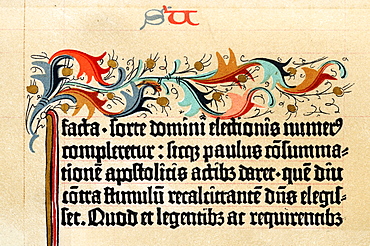 facta · sorte domini electionis numerꝰ
compleretur : sicq; paulus cōsumma-
tionē apostolicis actibꝫ daret · quē diu
cōtra stimulū recalcitrantē dn̄s elegis-
set. Quod et legentibꝫ ac requirentibꝫ